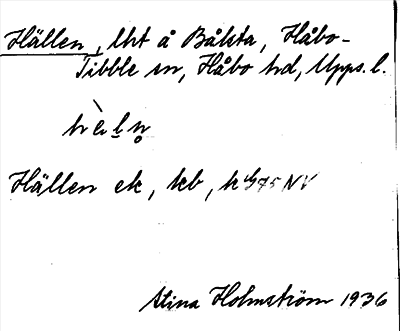 Hällen, lht å Bålsta, Håbo-
Tibble sn, Håbo hd, Upps. l.
Hällen ek, kb,
Stina Holmström 1936